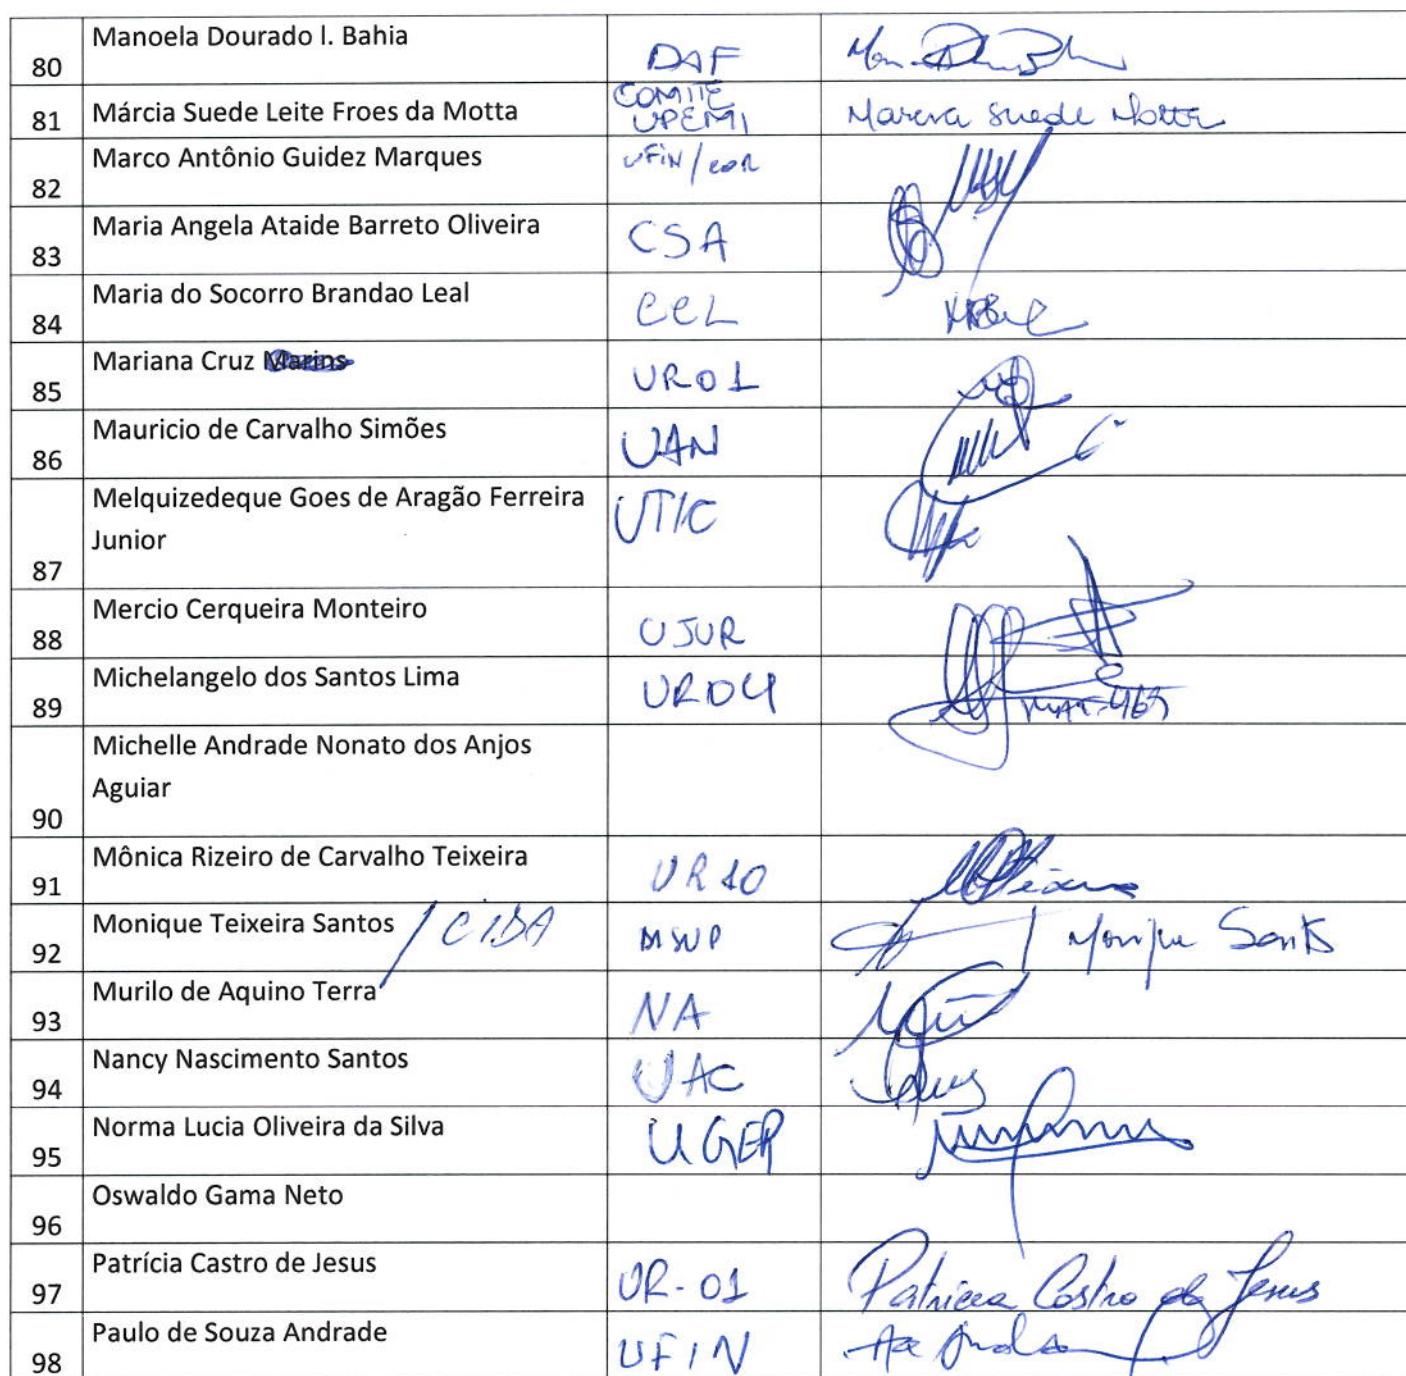 80 Manoela Dourado l. Bahia DAF
81 Márcia Suede Leite Froes da Motta COMITE UPEMI Marcia Suede Motta
82 Marco Antônio Guidez Marques UFIN/COR
83 Maria Angela Ataide Barreto Oliveira CSA
84 Maria do Socorro Brandao Leal CCL
85 Mariana Cruz Marins UR01
86 Mauricio de Carvalho Simões UAN
87 Melquizedeque Goes de Aragão Ferreira
Junior UTIC
88 Mercio Cerqueira Monteiro UJUR
89 Michelangelo dos Santos Lima UR04
90 Michelle Andrade Nonato dos Anjos
Aguiar
91 Mônica Rizeiro de Carvalho Teixeira UR10
92 Monique Teixeira Santos / CIBA MSUP Monique Santos
93 Murilo de Aquino Terra NA
94 Nancy Nascimento Santos UAC
95 Norma Lucia Oliveira da Silva UGEP
96 Oswaldo Gama Neto
97 Patrícia Castro de Jesus UR-01 Patricia Castro de Jesus
98 Paulo de Souza Andrade UFIN